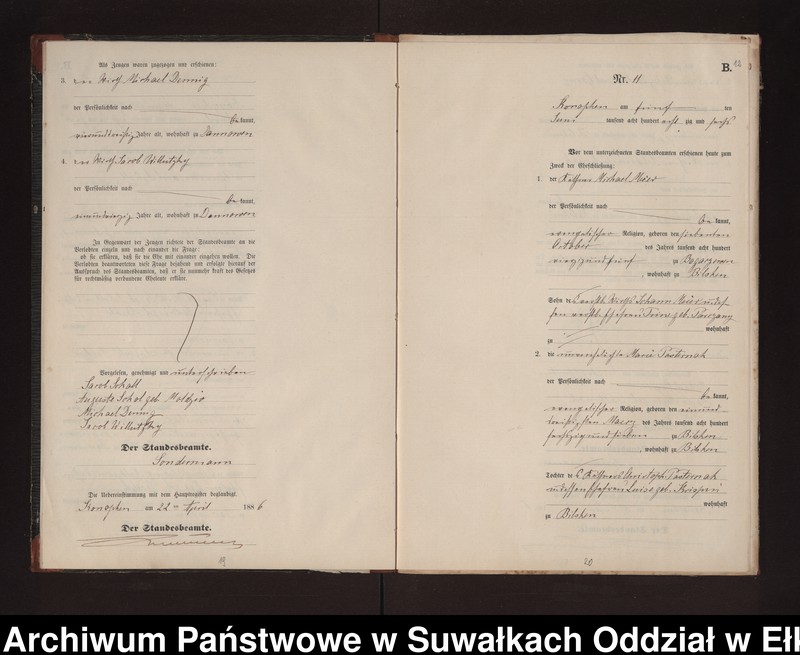 Als Zeugen waren zugezogen und erschienen:
3. der Wirth Michael Dennig
der Persönlichkeit nach
be kannt,
Jahre alt, wohnhaft zu Dannowen
4. der Wirth Jacob Willutzky
der Persönlichkeit nach
be kannt,
Jahre alt, wohnhaft zu Dannowen
In Gegenwart der Zeugen richtete der Standesbeamte an die
Verlobten einzeln und nach einander die Frage:
ob sie erklären, daß sie die Ehe mit einander eingehen wollen. Die
Verlobten beantworteten diese Frage bejahend und erfolgte hierauf der
Ausspruch des Standesbeamten, daß er sie nunmehr kraft des Gesetzes
für rechtmäßig verbundene Eheleute erkläre.
Vorgelesen, genehmigt und unterschrieben
Jacob
Auguste geb.
Michael Dennig
Jacob Willutzky
Der Standesbeamte.
Sondermann
Die Uebereinstimmung mit dem Hauptregister beglaubigt
Konopken am 22ten April 1886
Der Standesbeamte.
19
B.
12
Nr. 11
Konopken am fünf ten
Juni tausend acht hundert acht zig und sechs
Vor dem unterzeichneten Standesbeamten erschienen heute zum
Zweck der Eheschließung:
1. der Käthner Michael Meier
der Persönlichkeit nach
be kannt,
evangelischer Religion, geboren den siebenten
October des Jahres tausend acht hundert
vierzig und fünf zu
, wohnhaft zu Bilsken
Sohn des Wirths Johann Meier und des-
sen Ehefrau geb.
wohnhaft
zu
2. die unverehelichte Marie Pasternak
der Persönlichkeit nach
be kannt,
evangelischer Religion, geboren den einund-
dreißigsten März des Jahres tausend acht hundert
sechszig und sieben zu Bilsken
, wohnhaft zu Bilsken
Tochter des Käthners Christoph Pasternak
und dessen Ehefrau Luise geb.
wohnhaft
zu Bilsken
20
Archiwum Państwowe w Suwałkach Oddział w Ełk